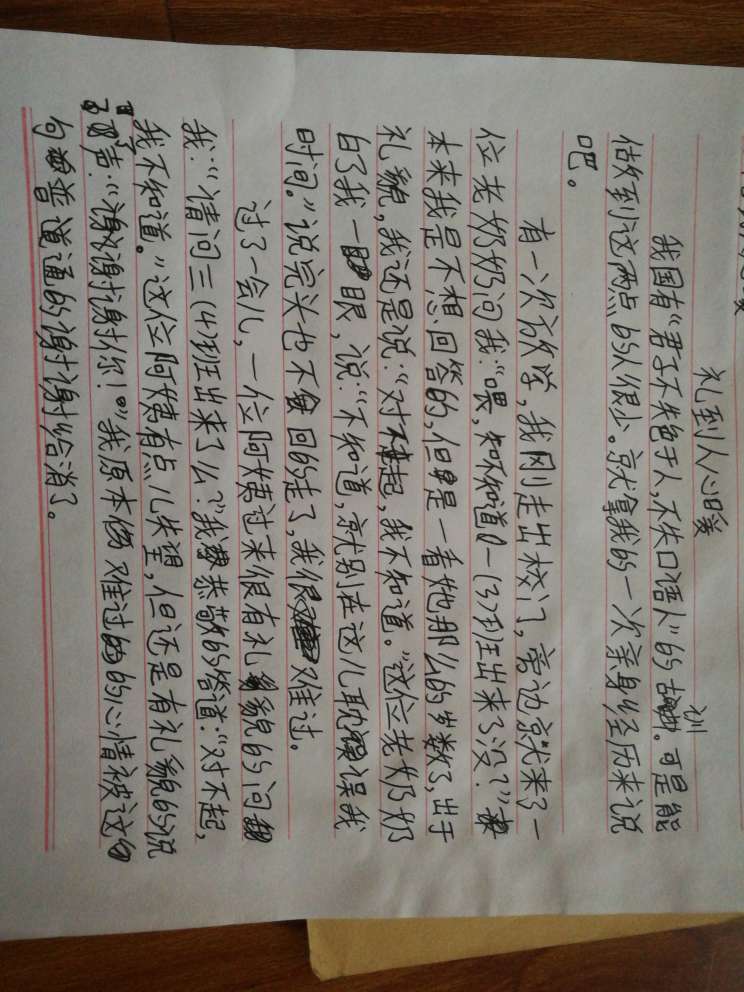 礼到人心暖
我国有“君子不失色于人,不失口语人”的古训。可是能
做到这两点的人很少。就拿我的一次亲身经历来说
吧。
有一次放学,我刚走出校门,旁边就来了一
位老奶奶问我:“喂,知不知道一(3)班出来了没?”
本来我是不想回答的,但是一看她那么的岁数了,出于
礼貌,我还是说:“对不起,我不知道。”这位老奶奶
白了我一眼,说:“不知道,就别在这儿耽误我
时间。”说完头也不回的走了,我很难过。
过了一会儿,一位阿姨过来很有礼貌的问
我:“请问三(4)班出来了么?”我恭敬的答道:“对不起,
我不知道。”这位阿姨有点儿失望,但还是有礼貌的说
了声:“谢谢你!”我原本难过的心情被这
句普通的谢谢给消了。